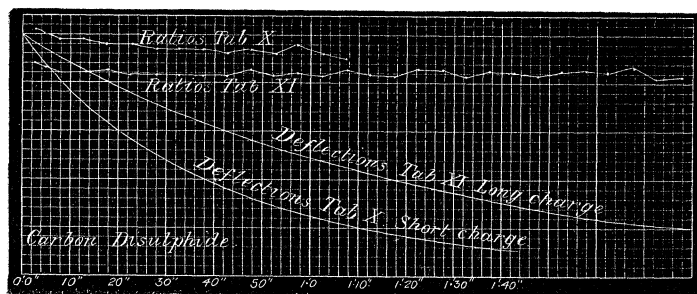 Ratios Tab X
Ratios Tab XI
Deflections Tab XI Long charge
Deflections Tab X Short charge
Carbon Disulphide
0·0" 10" 20" 30" 40" 50" 1·0 1·10" 1·20" 1·30" 1·40"